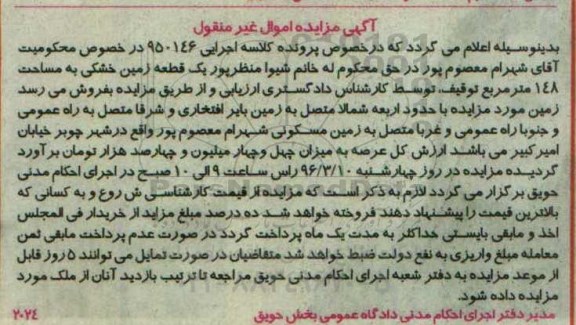 آگهی مزایده اموال غیر منقول
بدینوسیله اعلام می گردد که درخصوص پرونده کلاسه اجرایی ۹۵۰۱۴۶ در خصوص محکومیت
آقای شهرام معصوم پور در حق محکوم له خانم شیوا منظرپور یک قطعه زمین خشکی به مساحت
۱۴۸ مترمربع توقیف، توسط کارشناس دادگستری ارزیابی و از طریق مزایده بفروش می رسد
زمین مورد مزایده با حدود اربعه شمالا متصل به زمین بایر افتخاری و شرقا متصل به راه عمومی
و جنوبا راه عمومی و غربا متصل به زمین مسکونی شهرام معصوم پور واقع درشهر چوبر خیابان
امیرکبیر می باشد ارزش کل عرصه به میزان چهل وچهار میلیون و چهارصد هزار تومان برآورد
گردیده مزایده در روز چهارشنبه ۹۶/۳/۱۰ راس ساعت ۹ الی ۱۰ صبح در اجرای احکام مدنی
حویق برگزار می گردد لازم به ذکر است که مزایده از قیمت کارشناسی ش روع و به کسانی که
بالاترین قیمت را پیشنهاد دهند فروخته خواهد شد ده درصد مبلغ مزاید از خریدار فی المجلس
اخذ و مابقی بایستی حداکثر به مدت یک ماه پرداخت گردد در صورت عدم پرداخت مابقی ثمن
معامله مبلغ واریزی به نفع دولت ضبط خواهد شد متقاضیان در صورت تمایل می توانند ۵ روز قابل
از موعد مزایده به دفتر شعبه اجرای احکام مدنی حویق مراجعه تا ترتیب بازدید آنان از ملک مورد
مزایده داده شود.
مدیر دفتر اجرای احکام مدنی دادگاه عمومی بخش حویق
۲۰۲۴